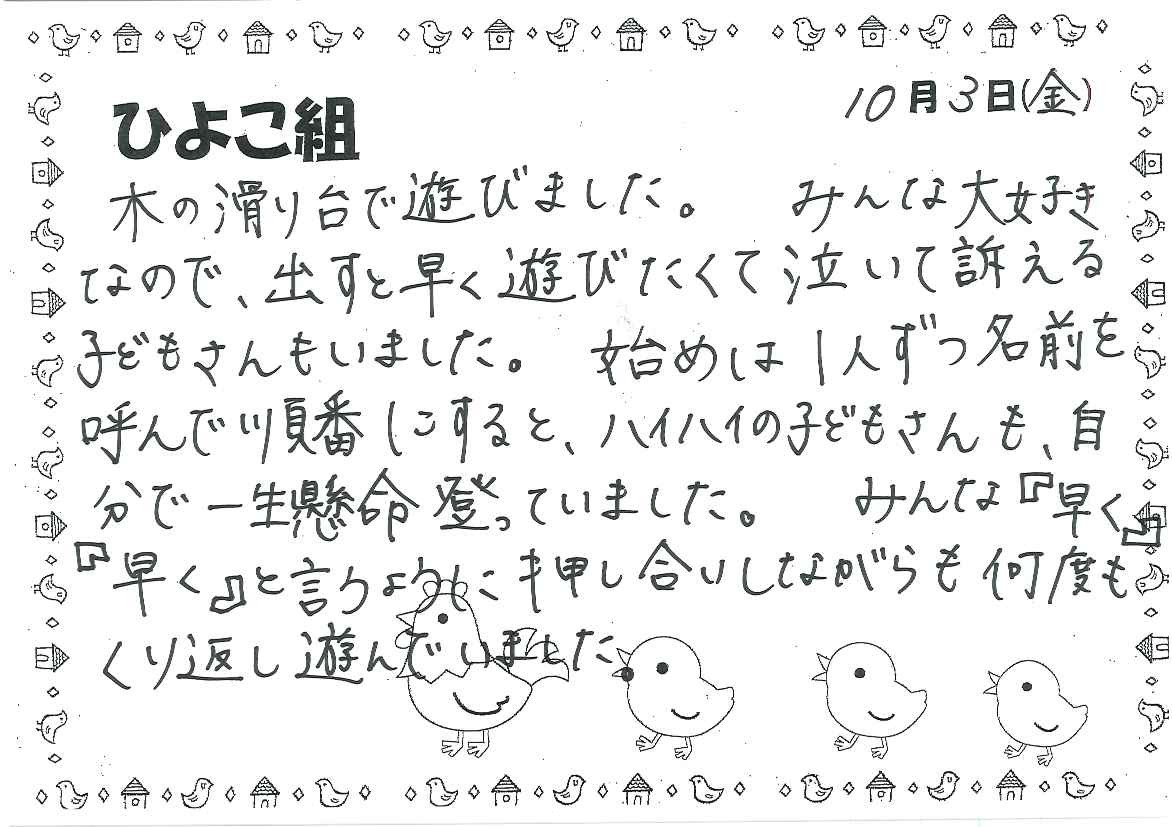 10月3日(金)
ひよこ組
木の滑り台で遊びました。 みんな大好き
なので、出すと早く遊びたくて泣いて訴える
子どもさんもいました。 始めは1人ずつ名前を
呼んで順番にすると、ハイハイの子どもさんも、自
分で一生懸命登っていました。 みんな『早く』
『早く』と言うように押し合いしながらも何度も
くり返し遊んでいました。